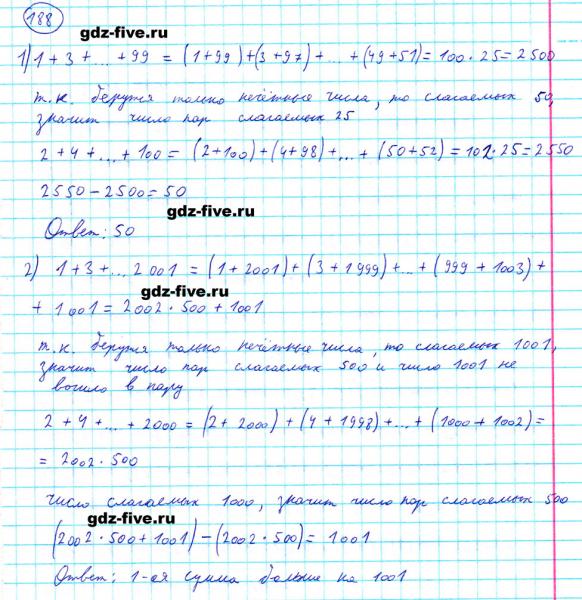 188
gdz-five.ru
1) 1 + 3 + ... + 99 = (1+99) + (3+97) + ... + (49+51) = 100 · 25 = 2500
т.к. берутся только нечётные числа, то слагаемых 50,
значит число пар слагаемых 25
2 + 4 + ... + 100 = (2+100) + (4+98) + ... + (50+52) = 102 · 25 = 2550
2550 - 2500 = 50
gdz-five.ru
Ответ: 50
2) 1 + 3 + ... 2001 = (1 + 2001) + (3 + 1999) + ... + (999 + 1003) +
gdz-five.ru
+ 1001 = 2002 · 500 + 1001
т.к. берутся только нечётные числа, то слагаемых 1001,
значит число пар слагаемых 500 и число 1001 не
вошло в пару
2 + 4 + ... + 2000 = (2 + 2000) + (4 + 1998) + ... + (1000 + 1002) =
= 2002 · 500
число слагаемых 1000, значит число пар слагаемых 500
gdz-five.ru
(2002 · 500 + 1001) - (2002 · 500) = 1001
Ответ: 1-ая сумма больше на 1001